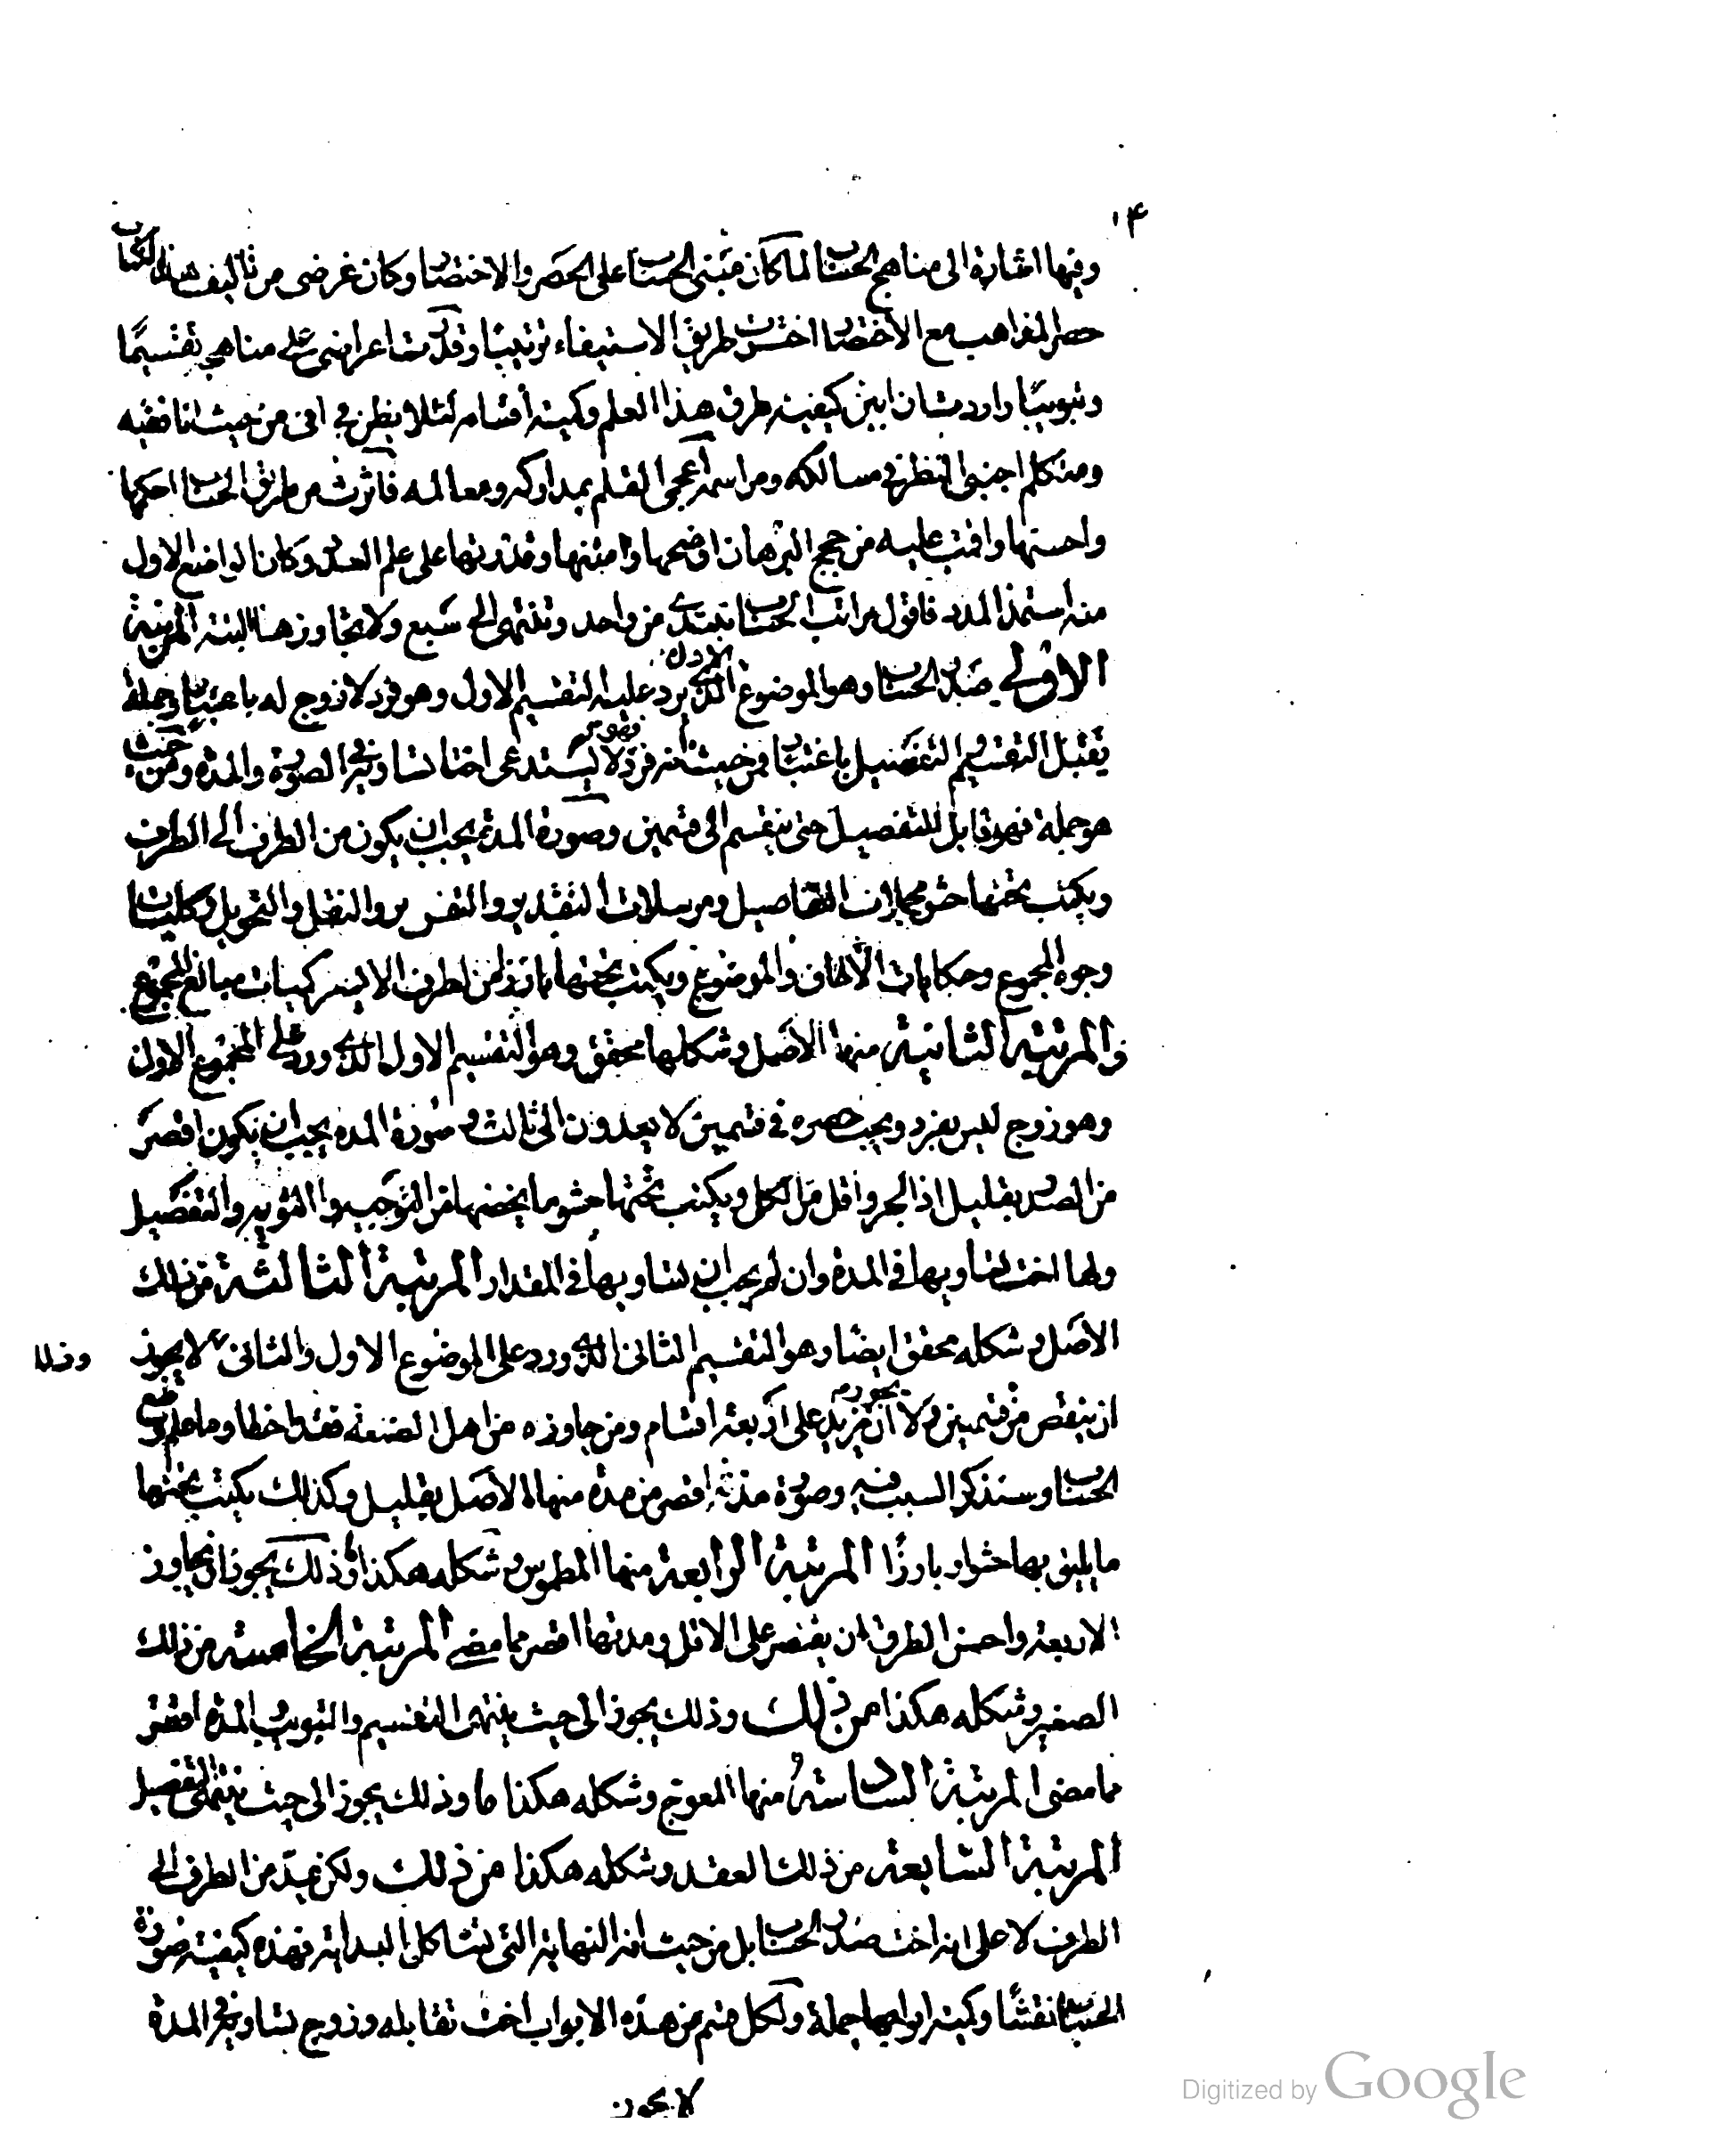 ١٤
وفيها اشارة الى مناهج الحساب لما كان مبنى الحساب على الحصر والاختصار وكان غرضى من تاليف هذا الكتاب
حصر المذاهب مع الاختصار اخترت طريق الاستيفاء ترتيبا وقدرت اغراضى على مناهجه تقسيما
وتبويبا واردت ان ابين كيفية طرق هذا العلم وكمية اقسامه لئلا يظن بى انى من حيث انا فقيه
ومتكلم اجنبى النظر فى مسالكه ومراسمه اعجمى القلم بمداركه ومعالمه فاثرت من طريق الحساب احكمها
واحسنها واقمت عليه من حجج البرهان اوضحها وامتنها وقدرتها على علم العدد وكان الواضع الاول
منه استمد المدد فاقول مراتب الحساب تبتدى من واحد وتنتهى الى سبع ولا تجاوزها البتة المرتبة
الاولى صدر الحساب وهو الموضوع الاول الذى يرد عليه التقسيم الاول وهو فرد لا زوج له باعتبار وجملة
يقبل التقسيم والتفصيل باعتبار فمن حيث انه فرد فهو لا يستدعى اختا تساويه فى الصورة والمدة ومن حيث
هو جملة فهو قابل للتفصيل حتى ينقسم الى قسمين وصورة المدة يجب ان يكون من الطرف الى الطرف
ويكتب تحتها حشو مجملات التفاصيل ومرسلات التقدير والتقرير والنقل والتحويل وكليات
وجوه المجموع وحكايات الالحاق والموضوع ويكتب تحتها بارزا من الطرف الايسر كميات مبالغ المجموع
والمرتبة الثانية منها الاصل وشكلها محقق وهو التقسيم الاول الذى ورد على المجموع الاول
وهو زوج ليس بفرد ويجب حصره فى قسمين لا يعدوان الى ثالث وصورة المدة يجب ان يكون اقصر
من الصدر بقليل اذ الجزو اقل من الكل ويكتب تحتها حشو ما يخصها من التوجيه والتنويع والتفصيل
ولها اخت تساويها فى المدة وان لم يجب ان تساويها فى المقدار المرتبة الثالثة من ذلك
الاصل وشكله محقق ايضا وهو التقسيم الثانى الذى ورد على الموضوع الاول والثانى وذلك لا يجوز
ان ينقص من قسمين ولا يجوز ان يزيد على اربعة اقسام ومن جاوزه من اهل الصنعة فقد اخطا وما علم وضع
الحساب وسنذكر السبب فيه وصورة مدته اقصر من مدة منها الاصل بقليل وكذلك يكتب تحتها
ما يليق بها حشوا وبارزا المرتبة الرابعة منها المطموس وشكله هكذا وذلك يجوز ان يجاوز
الاربعة واحسن الطرق ان يقتصر على الاقل ومدتها اقصر مما مضى المرتبة الخامسة من ذلك
الصغير وشكله هكذا من ذلك وذلك يجوز الى حيث ينتهى التقسيم والتبويب المدة اقصر
مما مضى المرتبة السادسة منها المعوج وشكله هكذا وذلك يجوز الى حيث ينتهى التفصيل
المرتبة السابعة من ذلك العقد وشكله هكذا من ذلك ولكن يمد من الطرف الى
الطرف لا على انه اخت صدر الحساب بل من حيث انه النهاية التى تشاكل البداية فهذه كيفية صورة
الحساب نقشا وكمية ابوابها جملة ولكل قسم من هذه الابواب اخت تقابله وزوج يساويه فى المدة
لا يجوز